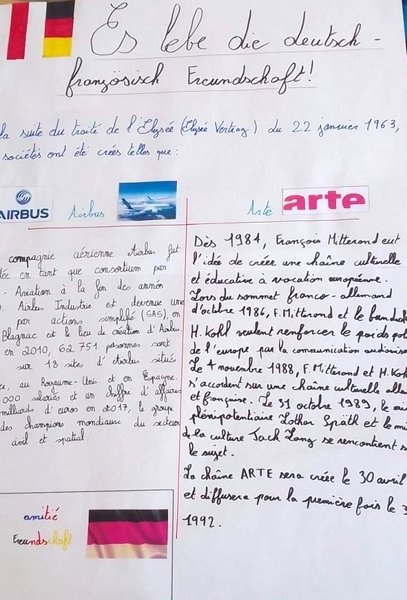 Es lebe die deutsch -
französisch Freundschaft!
la suite du traité de l'Elysée (Elysée Vertrag) du 22 janvier 1963,
sociétés ont été crées telles que :
AIRBUS
Airbus
Arte
arte
compagnie aérienne Airbus fut
en tant que consortium par
Aviation à la fin des années
Airbus Industrie est devenue une
par actions simplifié (SAS), en
Blagnac est le lieu de création d'Airbus
en 2010, 62 751 personnes sont
sur 18 sites d'Airbus situés
au Royaume-Uni et en Espagne.
000 salariés et un chiffre d'affaires
milliards d'euros en 2017, le groupe
des champions mondiaux du secteur
civil et spatial.
Dès 1984, François Mitterond eut
l'idée de créer une chaîne culturelle
et éducative à vocation européenne.
Lors du sommet franco-allemand
d'octobre 1986, F. Mitterond et le
H. Kohl veulent renforcer le poids
de l'europe par la communication
Le 4 novembre 1988, F. Mitterond et H. Kohl
s'accordent sur une chaîne culturelle
et française. Le 31 octobre 1989, le
plénipotentiaire Lothar Späth et le
de la culture Jack Lang se rencontrent
le sujet.
La chaîne ARTE sera créée le 30 avril
et diffusera pour la première fois le
1992.
amitié
Freundschaft